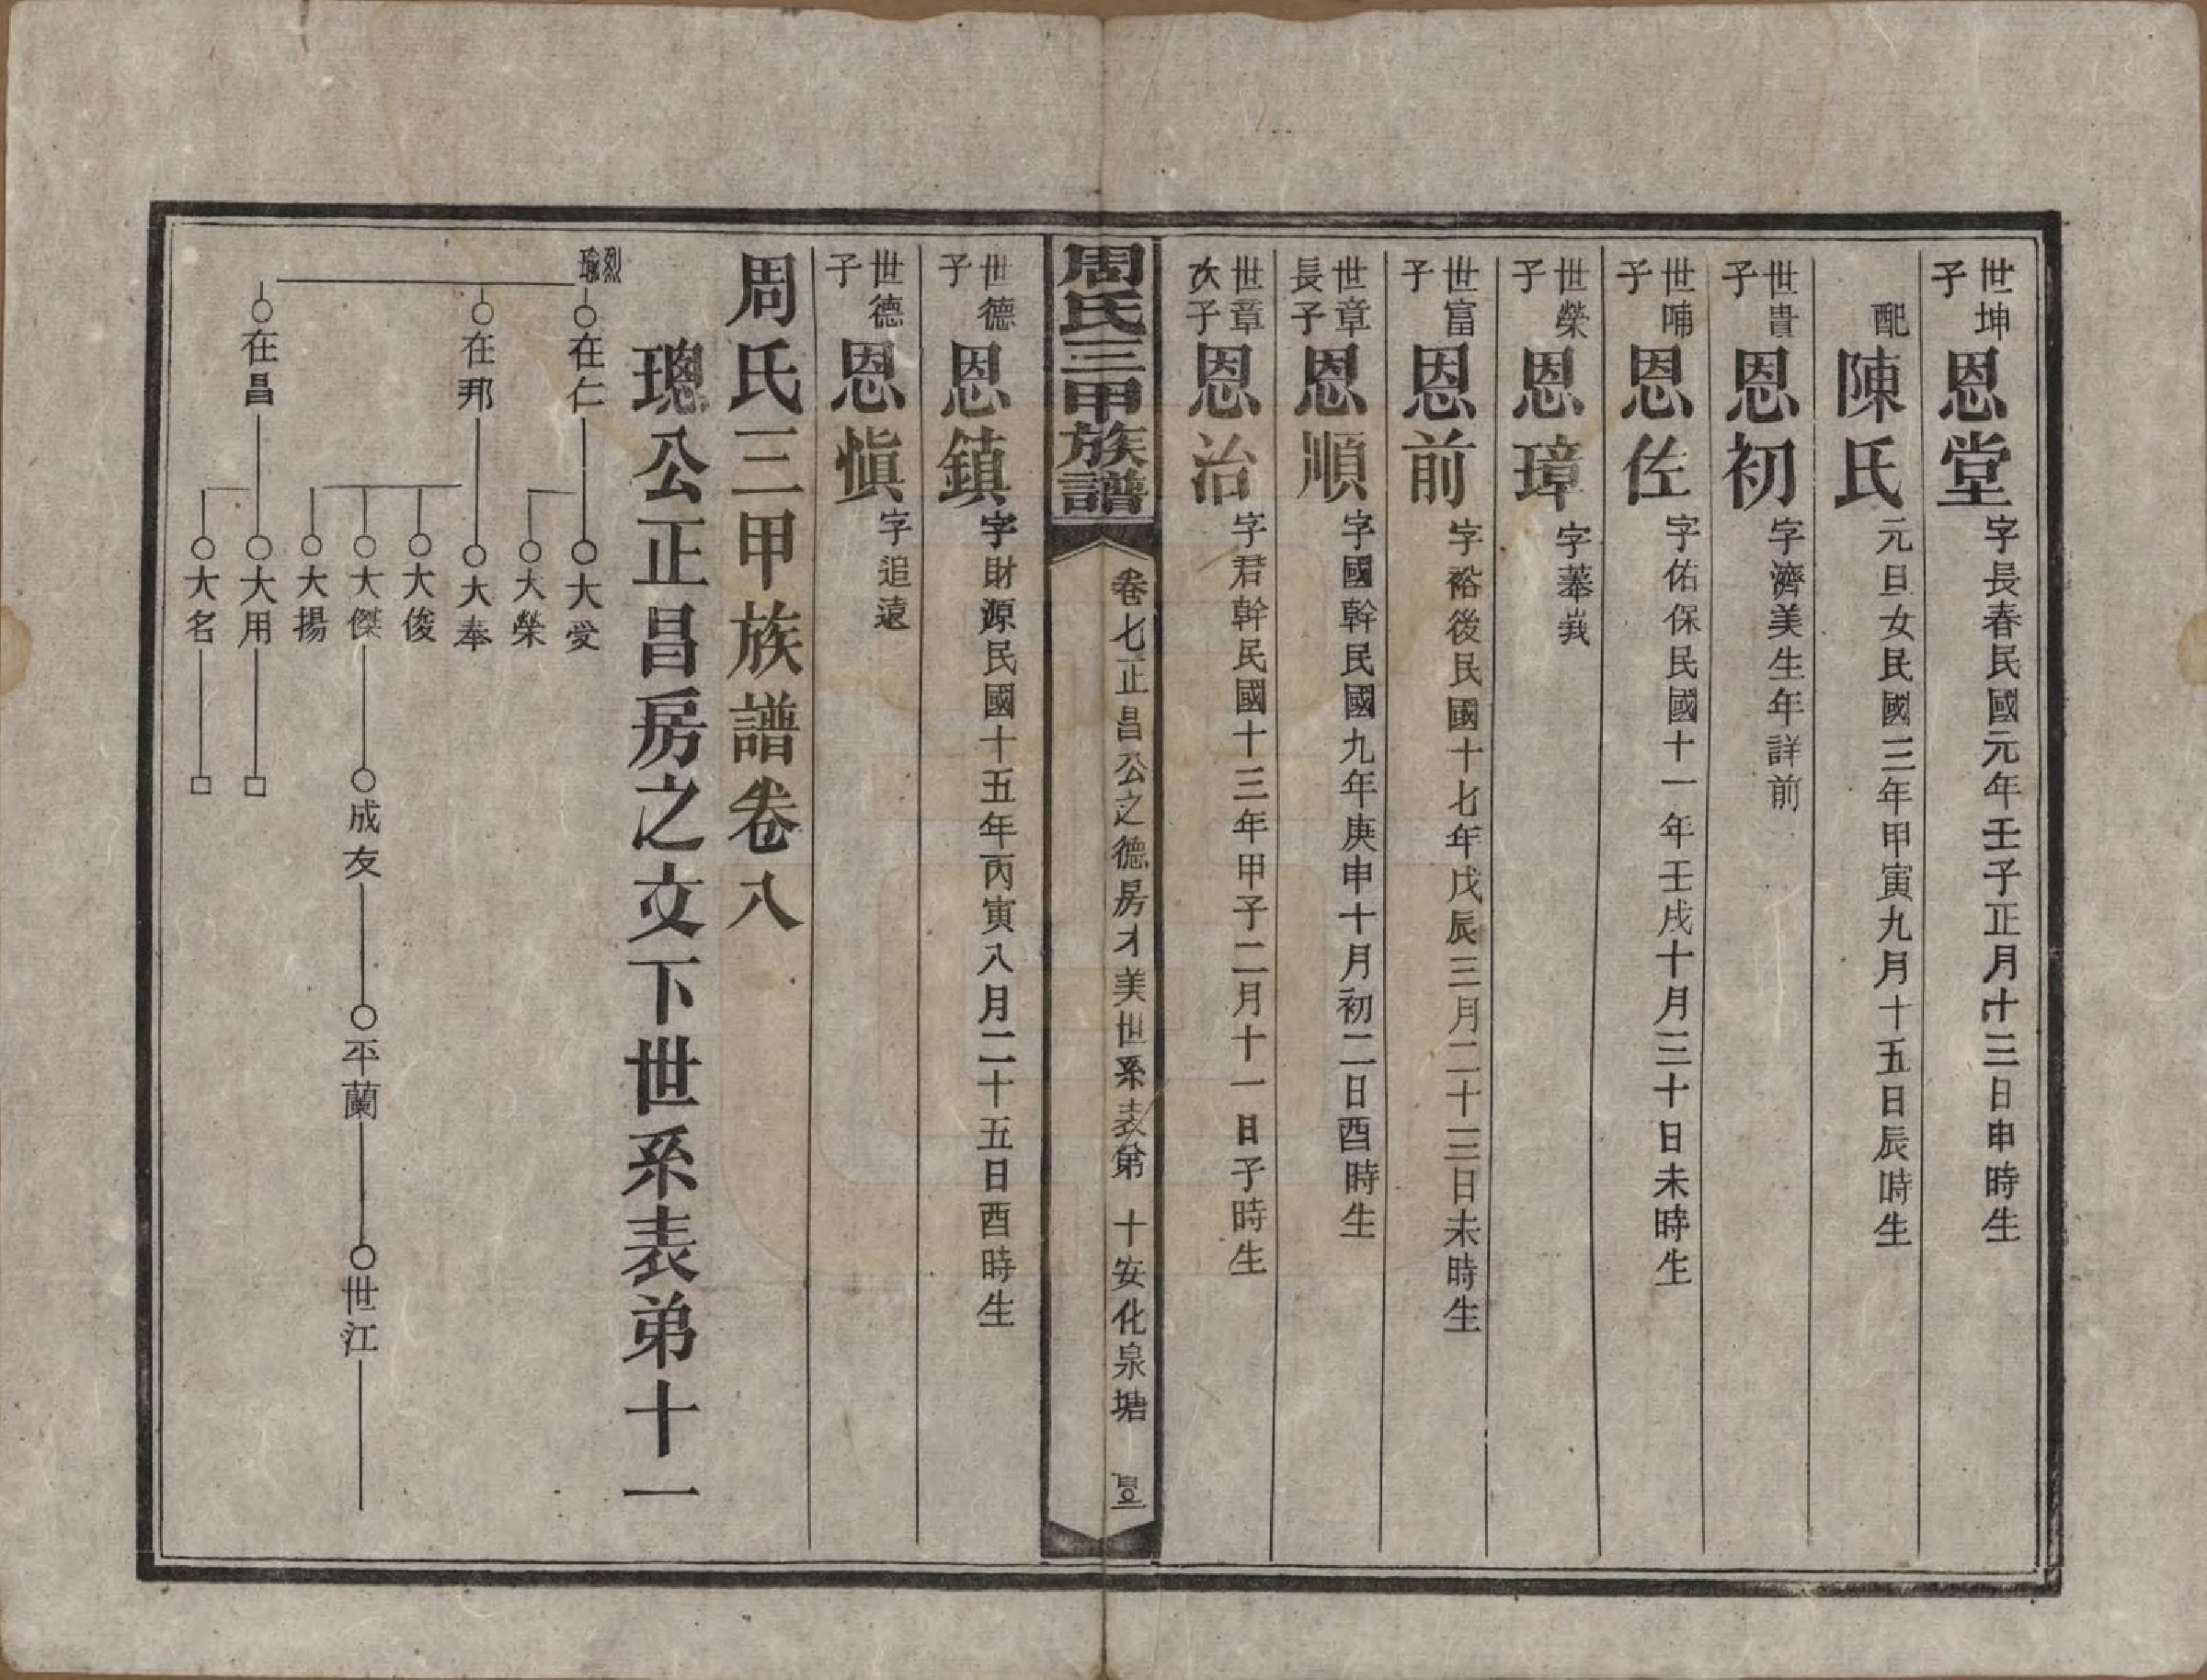 世坤子 恩堂 字長春民國元年壬子正月十三日申時生
配 陳氏 元旦女民國三年甲寅九月十五日辰時生
世貴子 恩初 字濟美生年詳前
世哺子 恩佐 字佑保民國十一年壬戌十月三十日未時生
世榮子 恩璋 字峩
世富子 恩前 字裕後民國十七年戊辰三月二十三日未時生
世章長子 恩順 字國幹民國九年庚申十月初二日酉時生
世章次子 恩治 字君幹民國十三年甲子二月十一日子時生
周氏三甲族譜 卷七正昌公之德房才美世系表第 十安化泉塘
世德子 恩鎮 字財源民國十五年丙寅八月二十五日酉時生
世德子 恩慎 字追遠
周氏三甲族譜卷八
璁公正昌房之文下世系表弟十一
烈瑜 ○在仁 ○大愛
○大榮
○在邦 ○大奉
○大俊
○大傑 ○成友 ○平蘭 ○世江
○大揚
○在昌 ○大用 □
○大名 □